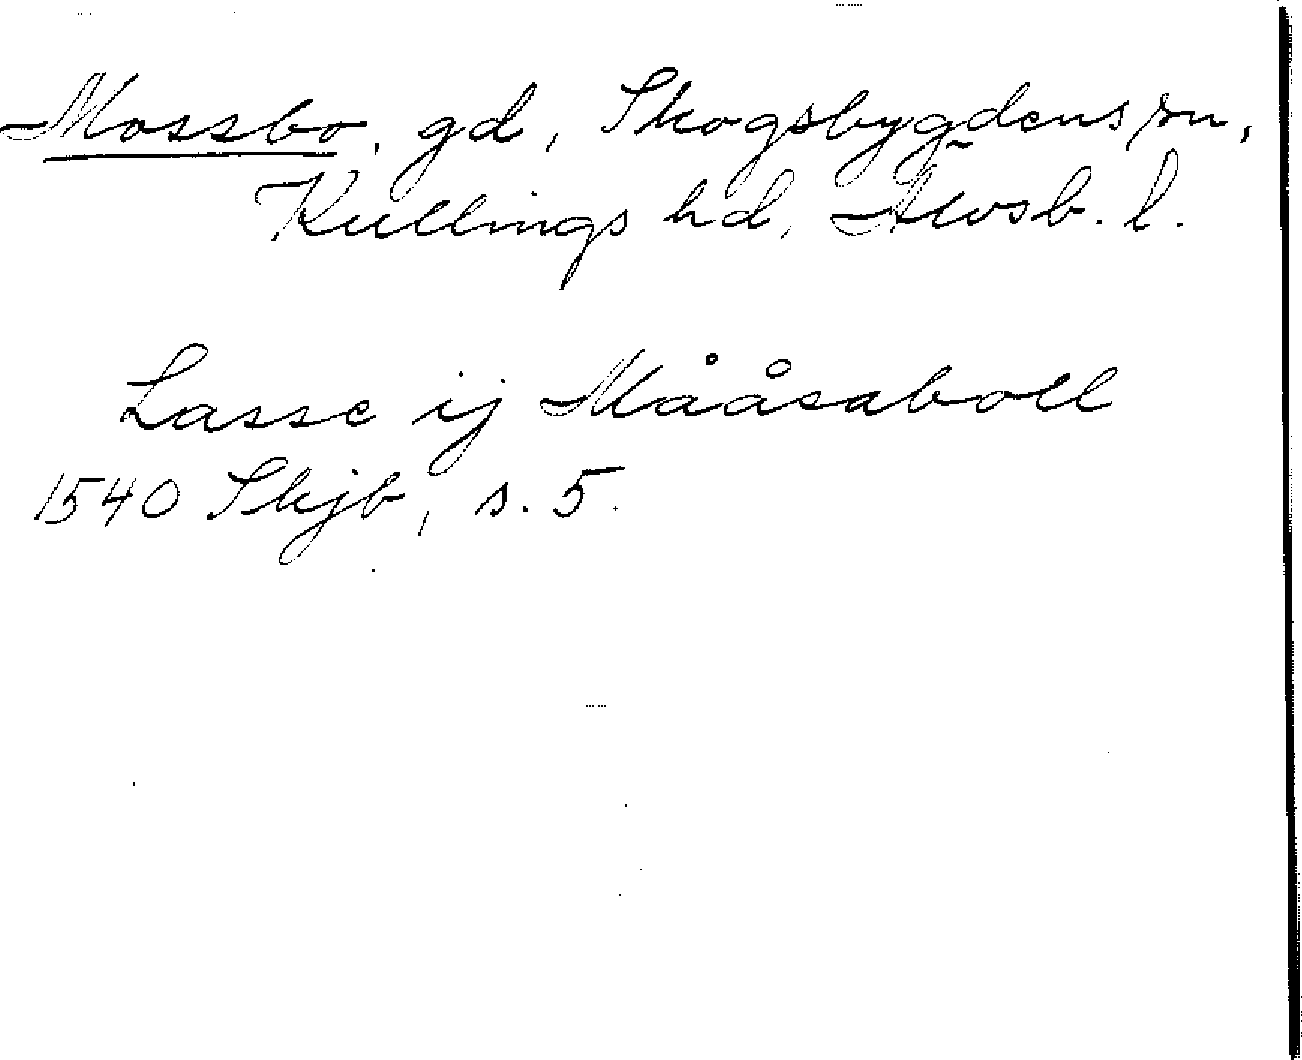 Mossbo, gd, Skogsbygdens sn,
Kullings hd, Älvsb. l.
Lasse ij Mååsaboll
1540 Skjb, s. 5.